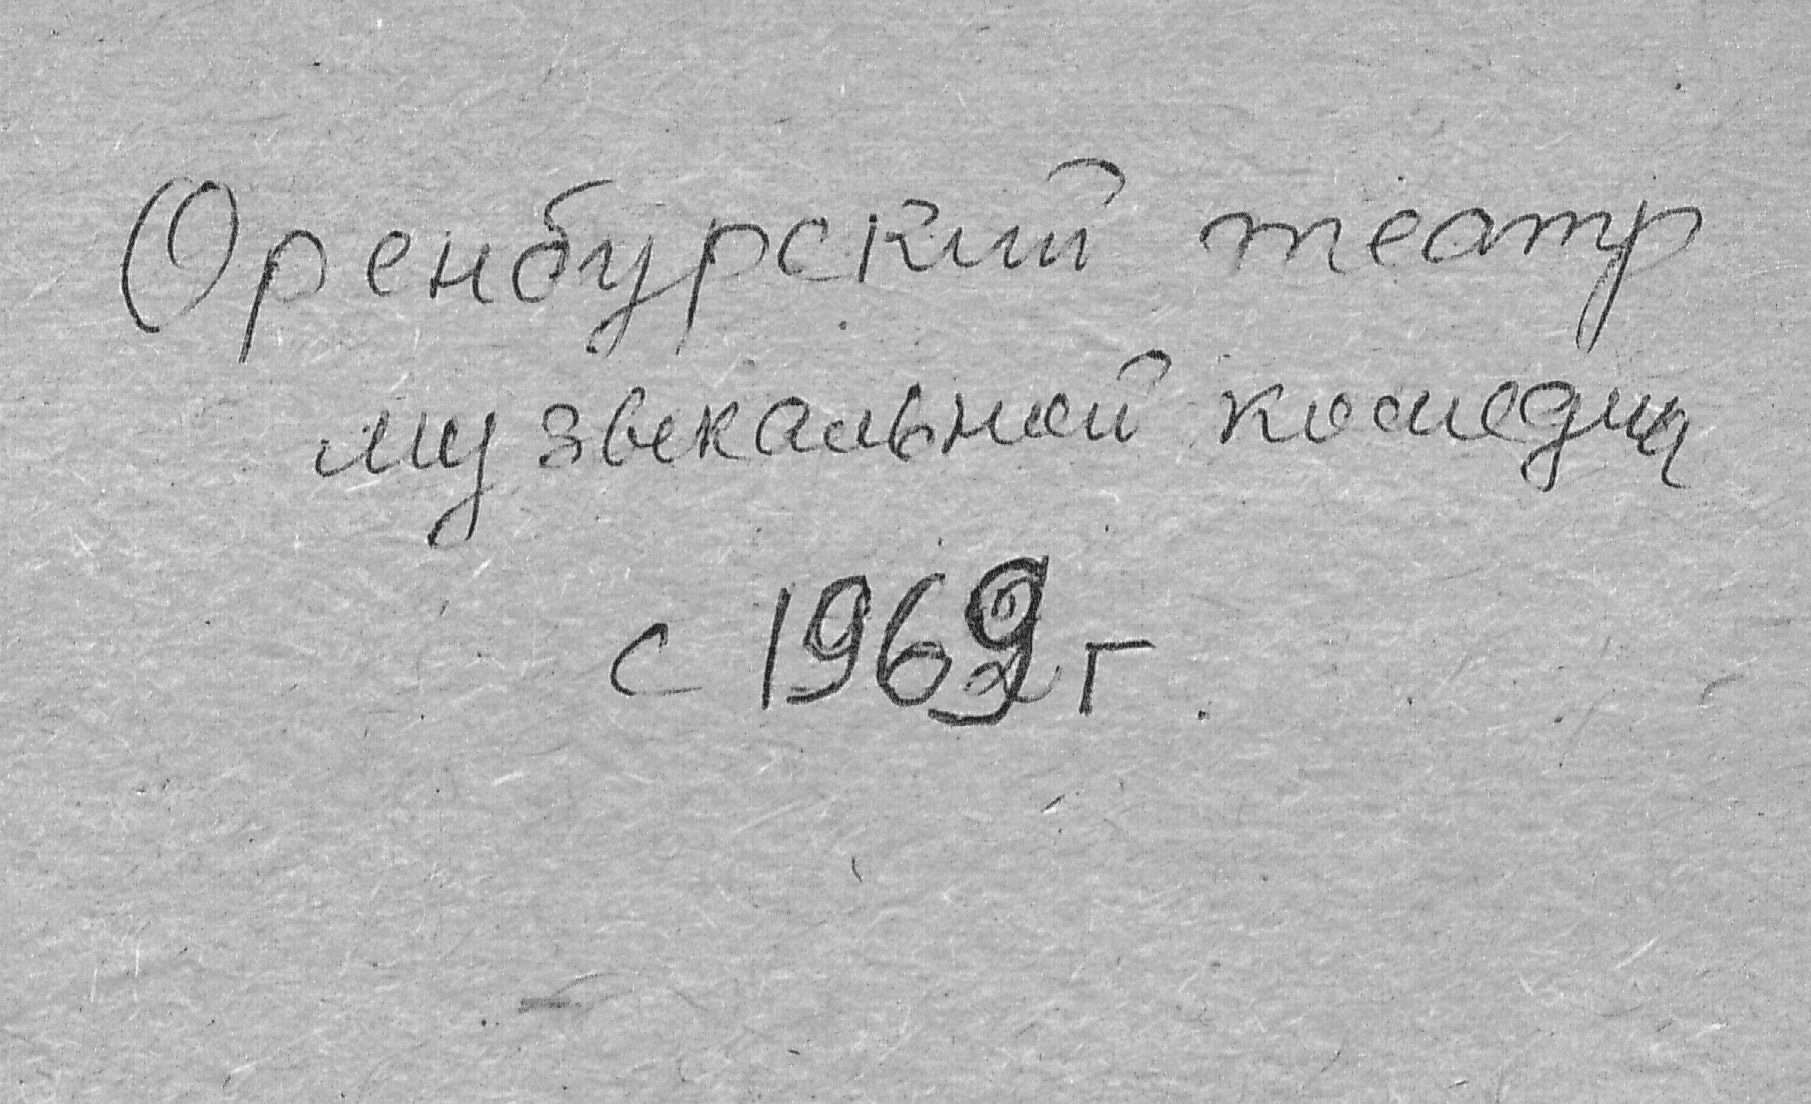 Оренбургский театр
музыкальной комедии
с 1969 г.